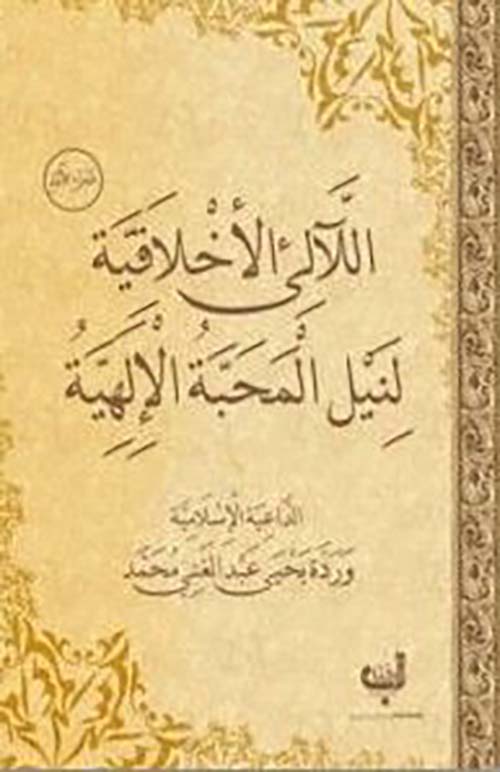 الجزء الأول
اللَّآلِئ الأَخْلَاقِيَّة
لِنَيْلِ الْمَحَبَّةُ الْإِلَهِيَّةُ
الدَّاعِيَة الْإِسْلَامِيَّة
وَرْدَة يَحْيَى عَبْد الْغَنِي مُحَمَّد